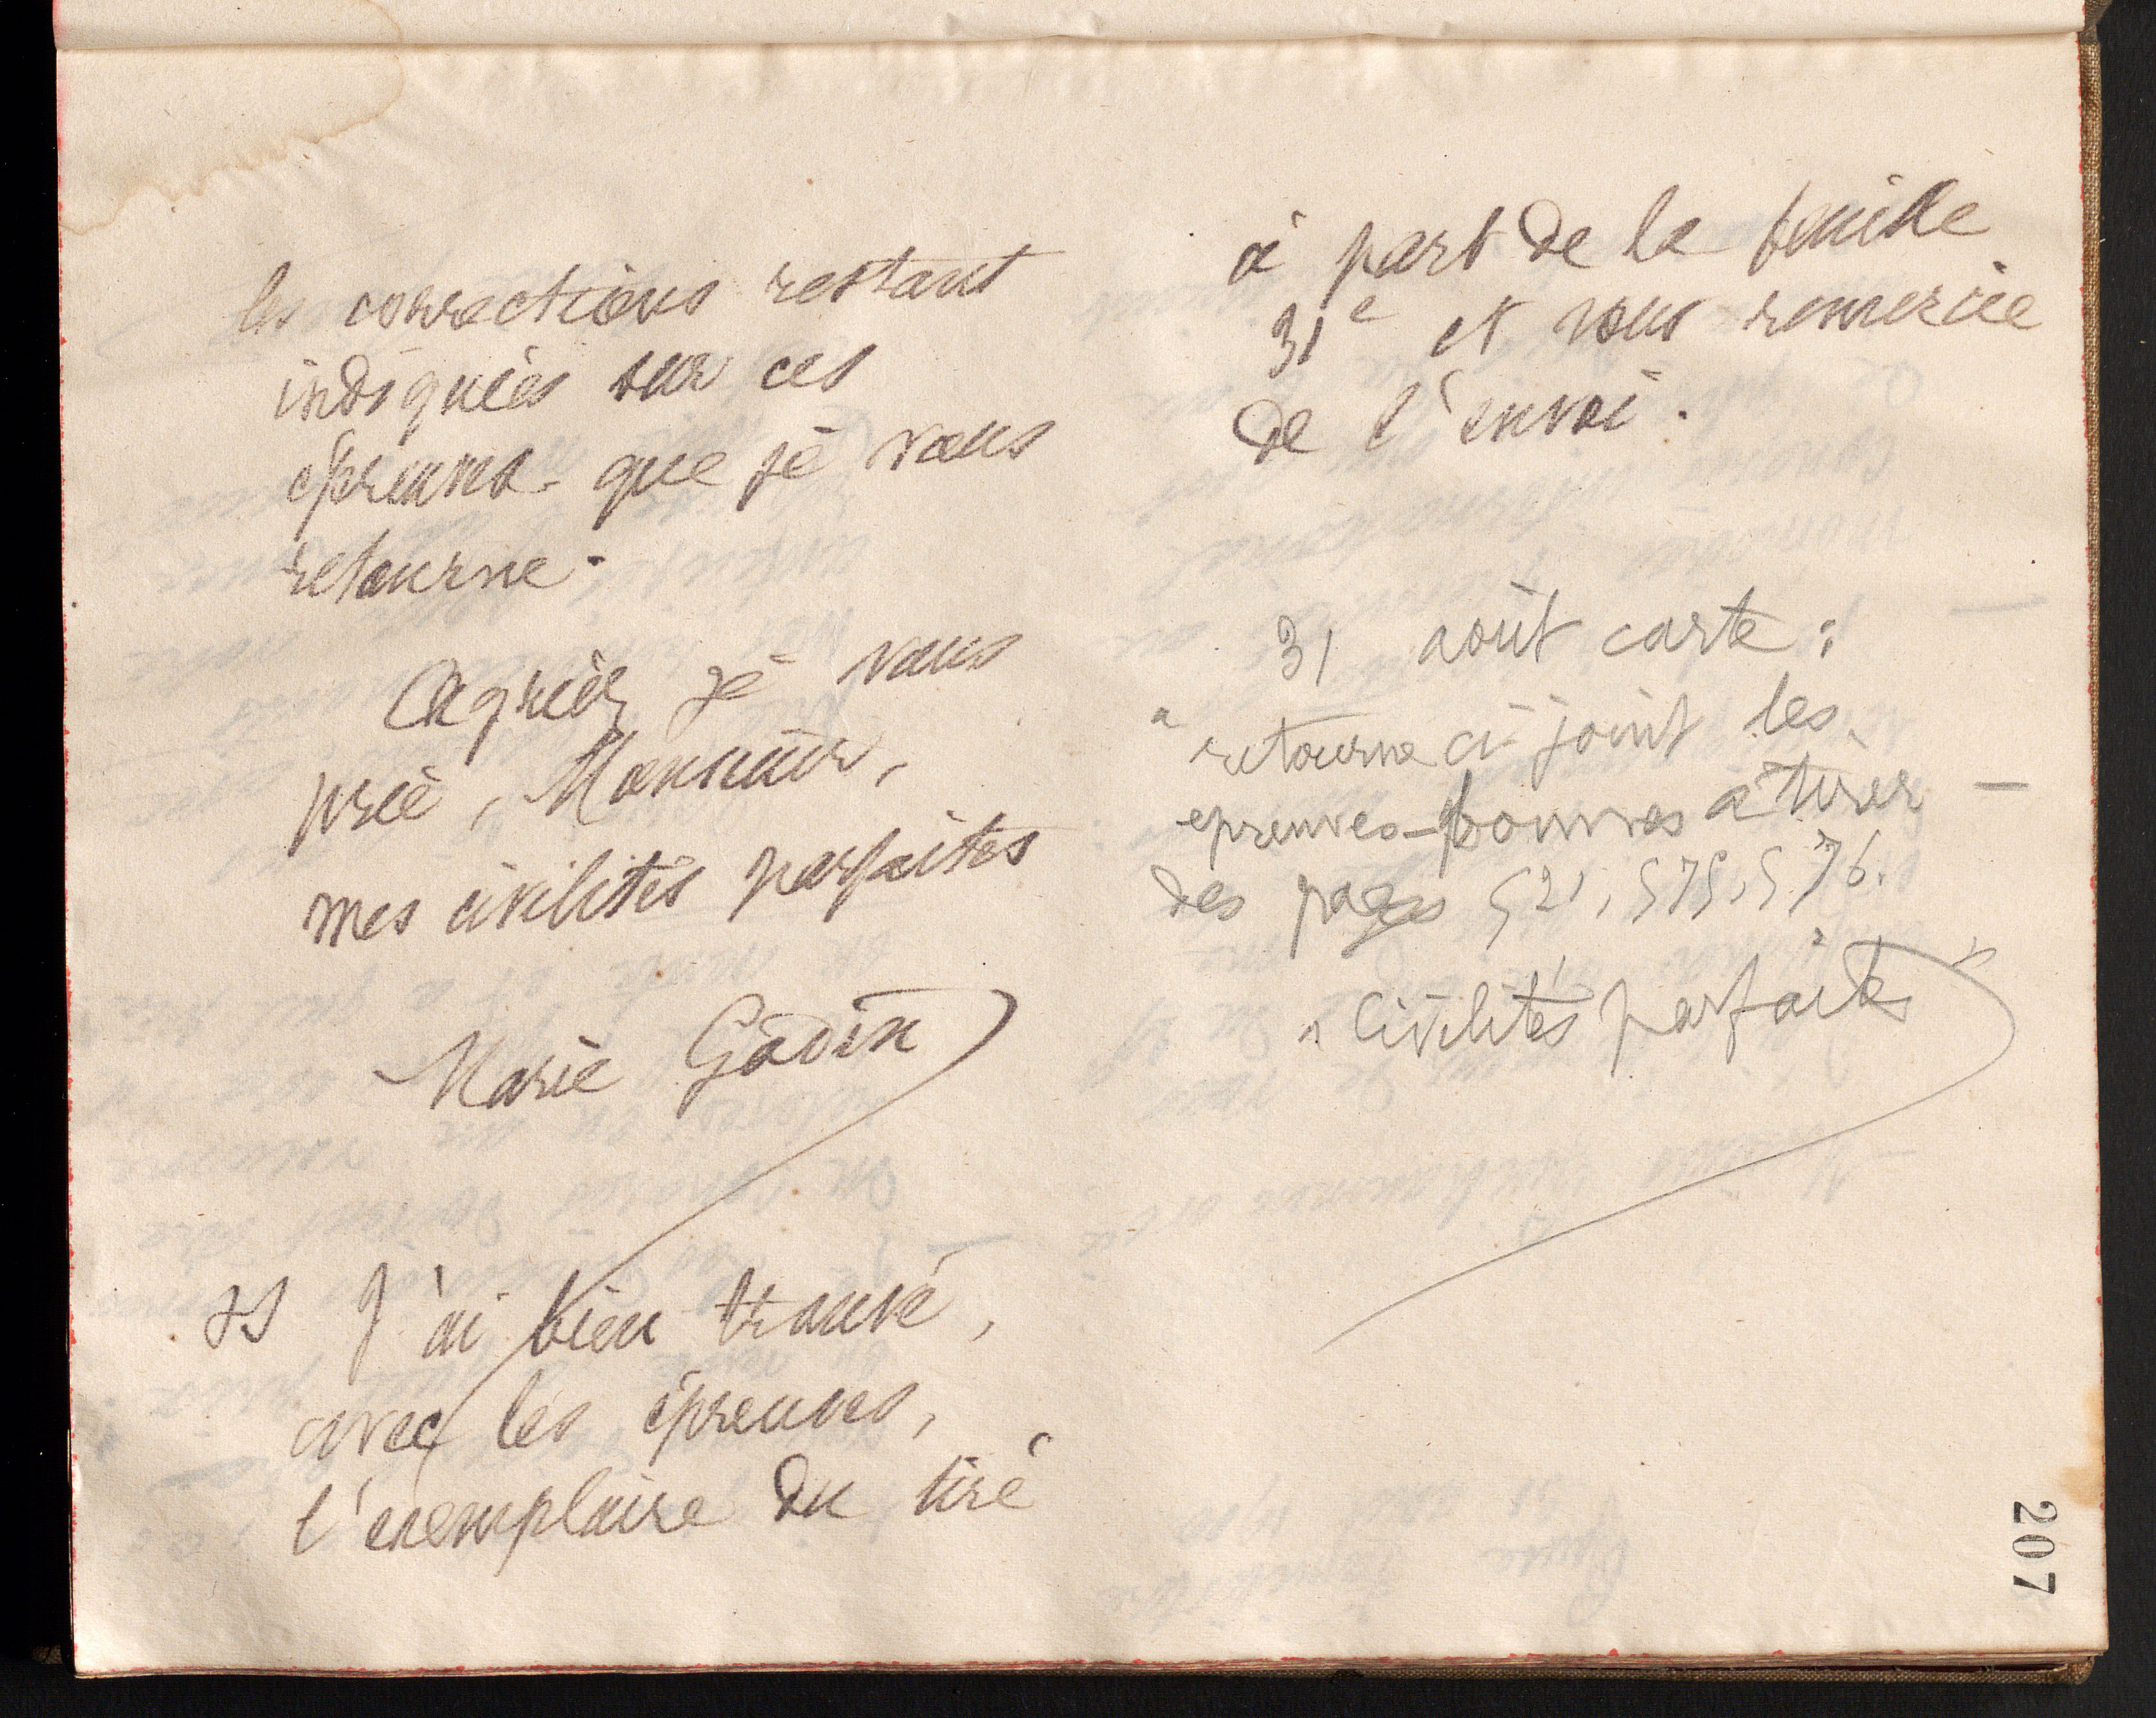 les corrections restant
indiquées sur ces
épreuves que je vous
retourne.
Agréez je vous
prie, Monsieur,
mes civilités parfaites
Marie Godin
J'ai bien trouvé,
avec les épreuves,
l'exemplaire du tiré
à part de la feuille
31e et vous remercie
de l'envoi.
31 août carte :
" retourne ci-joint les
epreuves bonnes à tirer —
des pages 521, 575, 576.
" Civilités parfaites "
207